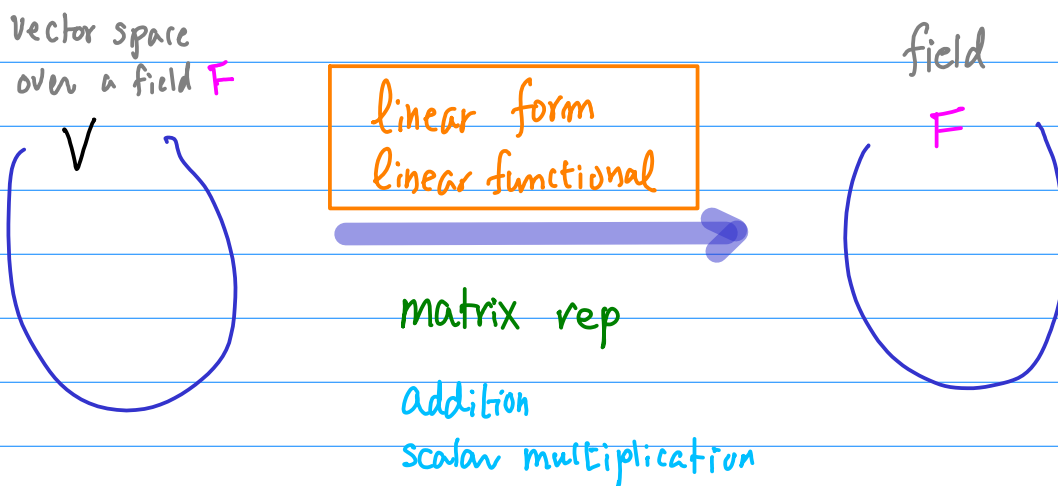 vector space
over a field F
V
linear form
linear functional
matrix rep
addition
scalar multiplication
field
F